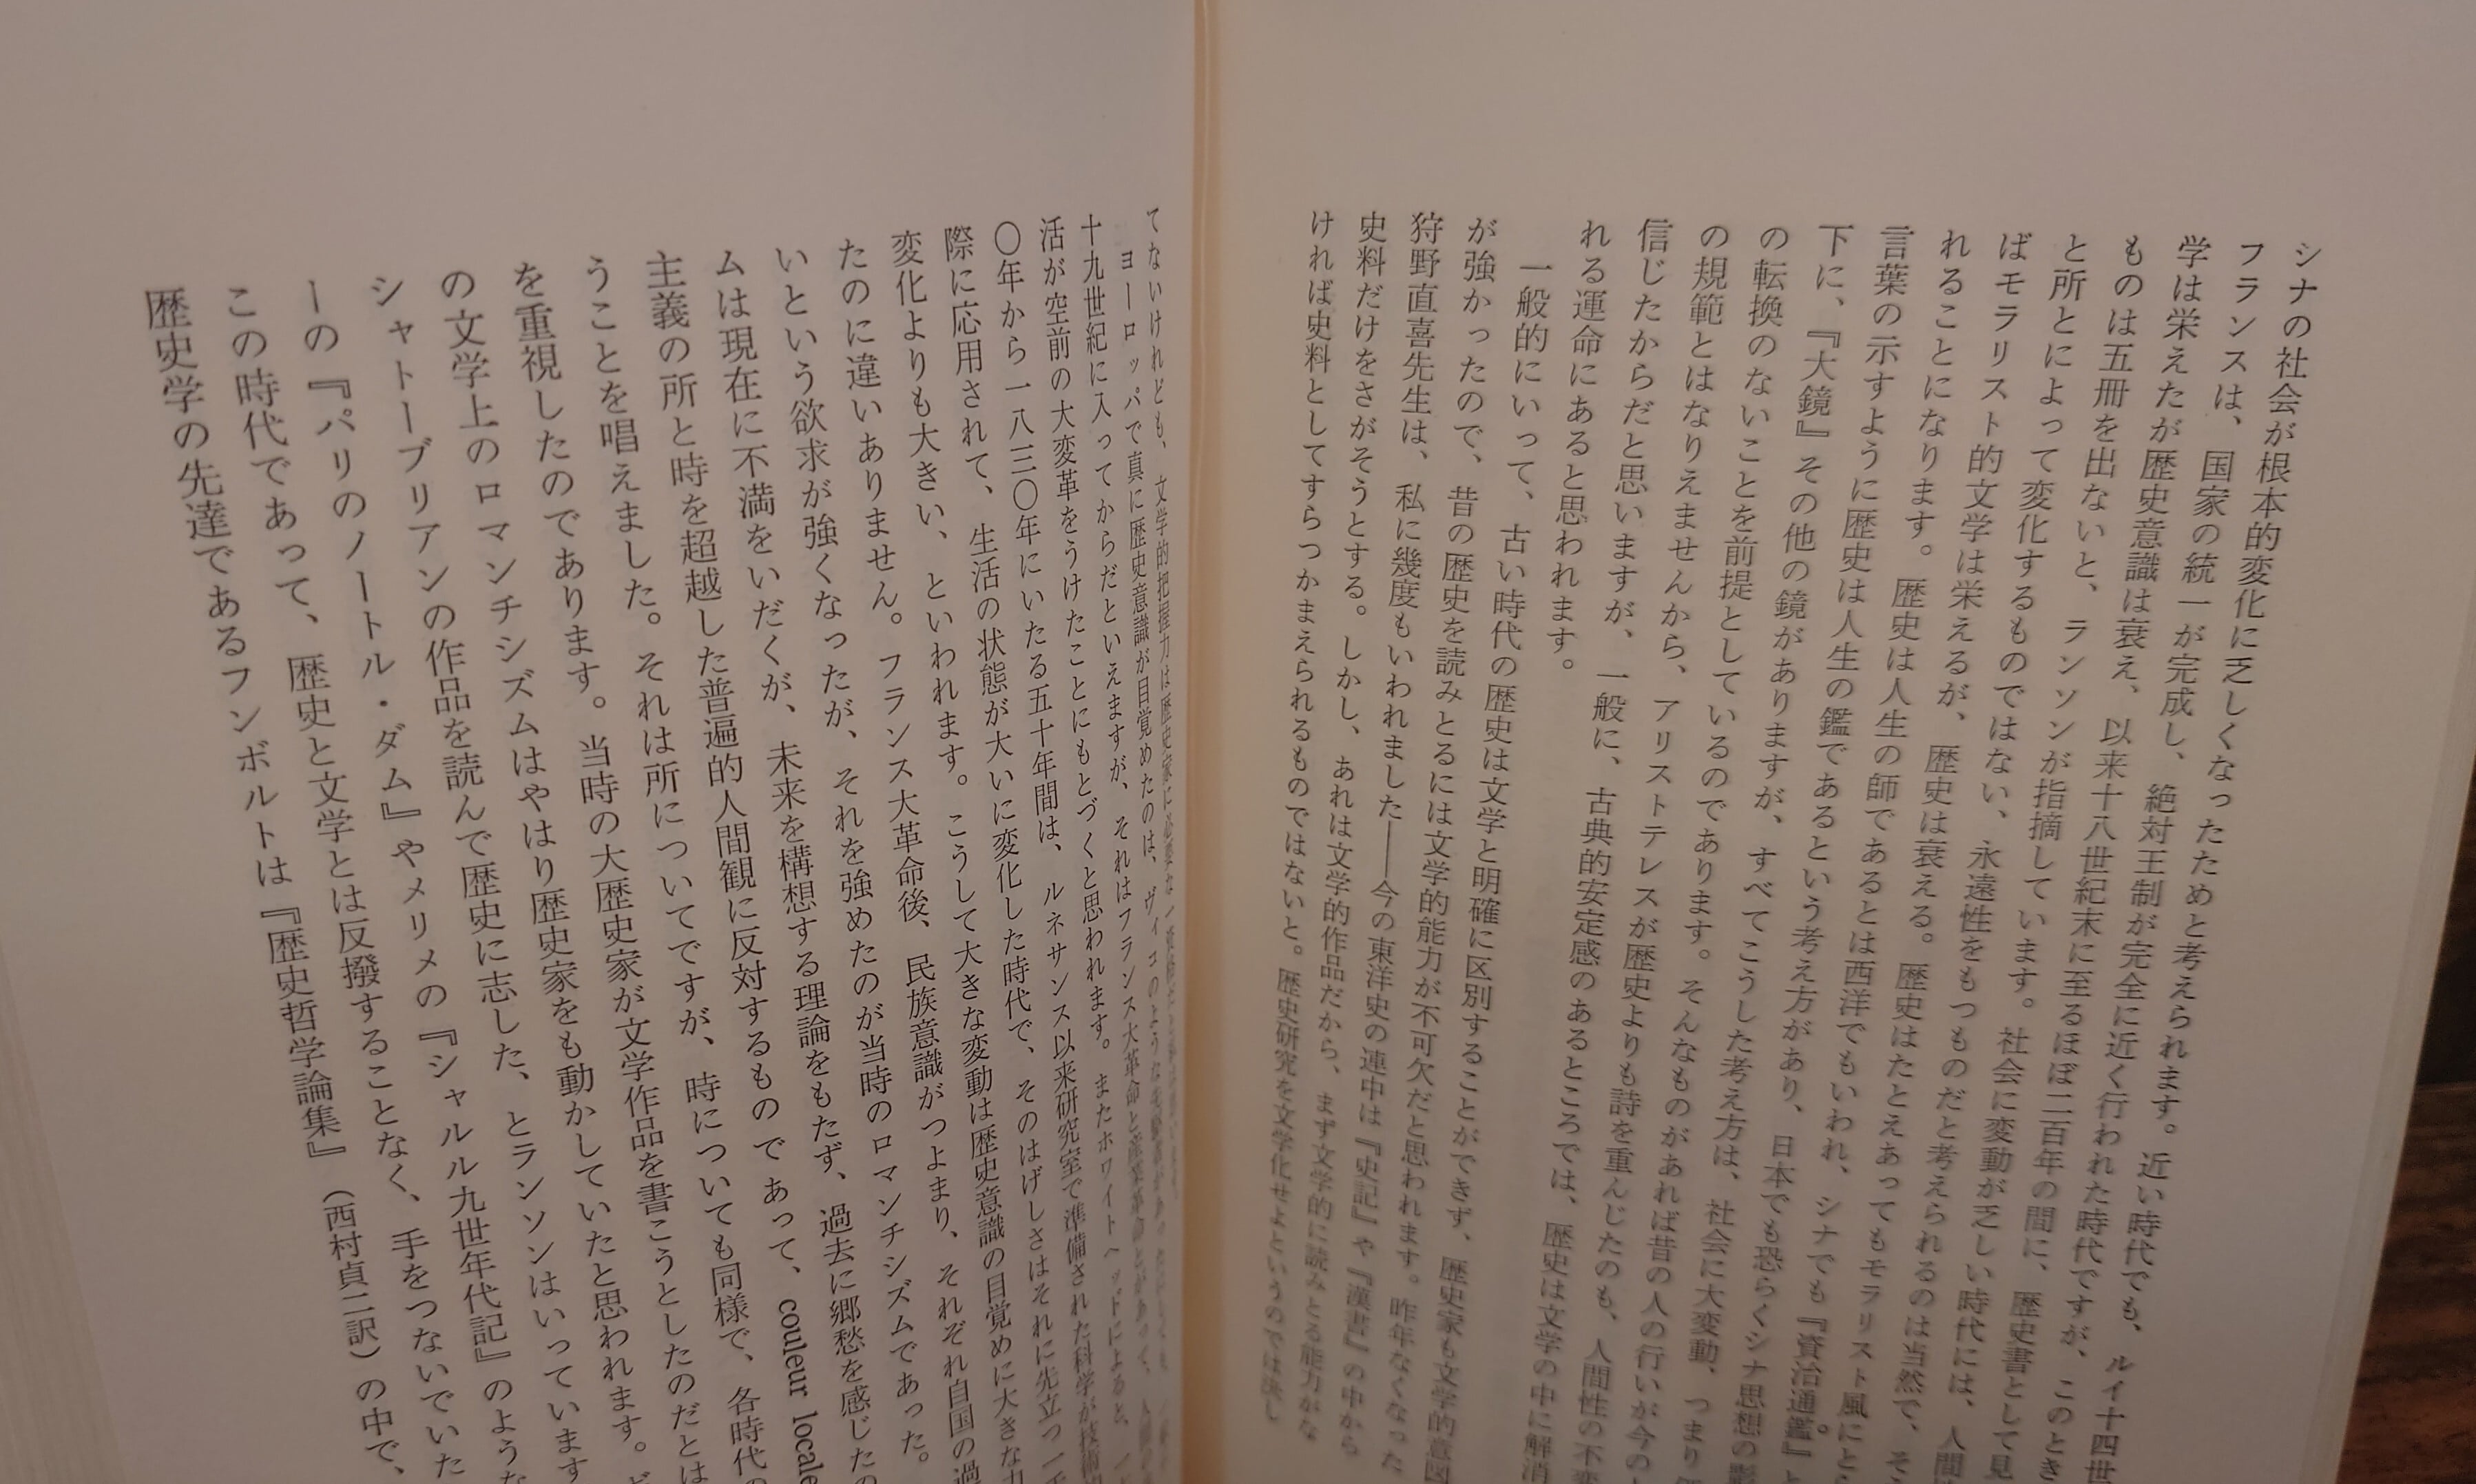 シナの社会が根本的変化に乏しくなったためと考えられます。近い時代でも、ルイ十四世
フランスは、国家の統一が完成し、絶対王制が完全に近く行われた時代ですが、このとき
学は栄えたが歴史意識は衰え、以来十八世紀末に至るほぼ二百年の間に、歴史書として見
ものは五冊を出ないと、ランソンが指摘しています。社会に変動が乏しい時代には、人間
と所とによって変化するものではない、永遠性をもつものだと考えられるのは当然で、そ
ばモラリスト的文学は栄えるが、歴史は衰える。歴史はたとえあってもモラリスト風にと
れることになります。歴史は人生の師であるとは西洋でもいわれ、シナでも『資治通鑑』と
言葉の示すように歴史は人生の鑑であるという考え方があり、日本でも恐らくシナ思想の影
下に、『大鏡』その他の鏡がありますが、すべてこうした考え方は、社会に大変動、つまり
の転換のないことを前提としているのであります。そんなものがあれば昔の人の行いが今の
の規範とはなりえませんから、アリストテレスが歴史よりも詩を重んじたのも、人間性の不変
信じたからだと思いますが、一般に、古典的安定感のあるところでは、歴史は文学の中に解消
れる運命にあると思われます。
一般的にいって、古い時代の歴史は文学と明確に区別することができず、歴史家も文学的意図
が強かったので、昔の歴史を読みとるには文学的能力が不可欠だと思われます。昨年なくなった
狩野直喜先生は、私に幾度もいわれました――今の東洋史の連中は『史記』や『漢書』の中から
史料だけをさがそうとする。しかし、あれは文学的作品だから、まず文学的に読みとる能力がな
ければ史料としてすらつかまえられるものではないと。歴史研究を文学化せよというのでは決し
てないけれども、文学的把握力は歴史家に必要な
ヨーロッパで真に歴史意識が目覚めたのは、ヴィコのような先駆者があったにしても、
十九世紀に入ってからだといえますが、それはフランス大革命と産業革命とがあって、人間の
活が空前の大変革をうけたことにもとづくと思われます。またホワイトヘッドによると、一
〇年から一八三〇年にいたる五十年間は、ルネサンス以来研究室で準備された科学が技術
際に応用されて、生活の状態が大いに変化した時代で、そのはげしさはそれに先立つ一千
変化よりも大きい、といわれます。こうして大きな変動は歴史意識の目覚めに大きな力
たのに違いありません。フランス大革命後、民族意識がつよまり、それぞれ自国の過
いという欲求が強くなったが、それを強めたのが当時のロマンチシズムであった。
ムは現在に不満をいだくが、未来を構想する理論をもたず、過去に郷愁を感じたの
主義の所と時を超越した普遍的人間観に反対するものであって、couleur locale
うことを唱えました。それは所についてですが、時についても同様で、各時代の
を重視したのであります。当時の大歴史家が文学作品を書こうとしたのだとは
の文学上のロマンチシズムはやはり歴史家をも動かしていたと思われます。ど
シャトーブリアンの作品を読んで歴史に志した、とランソンはいっています
ーの『パリのノートル・ダム』やメリメの『シャルル九世年代記』のような
この時代であって、歴史と文学とは反撥することなく、手をつないでいた
歴史学の先達であるフンボルトは『歴史哲学論集』（西村貞二訳）の中で、